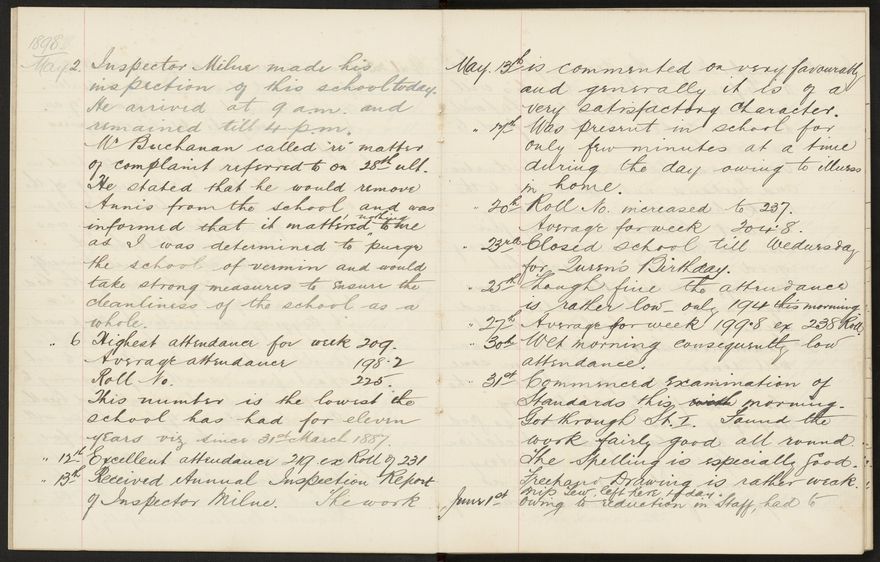 1898
May 2. Inspector Milne made his
inspection of this school today.
He arrived at 9 a.m. and
remained till 4 p.m.
Mr Buchanan called 're' matter
of complaint referred to on 28th ult.
He stated that he would remove
Annis from the school, and was
informed that it mattered nothing to me
as I was determined to purge
the school of vermin and would
take strong measures to ensure the
cleanliness of the school as a
whole.
" 6 Highest attendance for week 209.
Average attendance 198.2
Roll No. 225.
This number is the lowest the
school has had for eleven
years viz since 31st March 1887.
" 12th Excellent attendance 219 ex Roll of 231
" 13th Received Annual Inspection Report
of Inspector Milne. The work
May. 13th is commented on very favourably
and generally it is of a
very satisfactory character.
" 17th Was present in school for
only few minutes at a time
during the day owing to illness
in home.
" 20th Roll No. increased to 237.
Average for week 204.8.
" 23rd Closed school till Wednesday
for Queen's Birthday.
" 25th Though fine the attendance
is rather low - only 194 this morning
" 27th Average for week 199.8 ex 238 Roll.
" 30th Wet morning consequently low
attendance.
" 31st Commenced examination of
Standards this morning.
Got through St. I. Found the
work fairly good all round
The Spelling is especially good.
Freehand Drawing is rather weak.
June 1st Miss Lew. left here today.
owing to reduction in Staff, had to